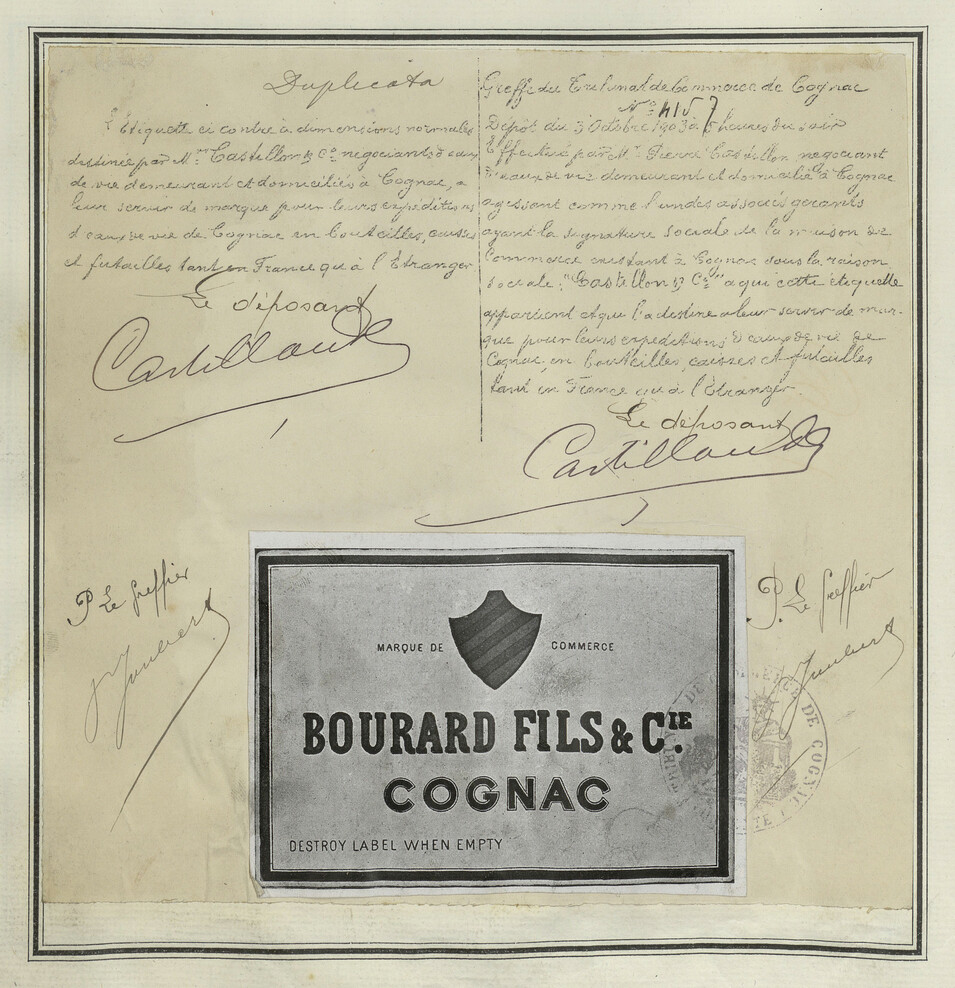 Duplicata
L'Etiquette ci contre à dimensions normales
destinée par M.rs Castillon & Co negociants d'eaux
de vie demeurant et domiciliés à Cognac, a
leur servir de marque pour leurs expéditions
d'eaux de vie de Cognac en bouteilles, caisses
et futailles tant en France qu'à l'Etranger
Le déposant
Greffe du Tribunal de Commerce de Cognac
No 4157
Dépot du 3 Octobre 1903 à 5 heures du soir
Effectué par M.r Pierre Castillon negociant
d'eaux de vie demeurant et domicilié à Cognac
agissant comme l'un des associés gerants
ayant la signature sociale de la maison de
Commerce existant à Cognac sous la raison
sociale: "Castillon & Co" a qui cette étiquette
appartient et qui l'a destine a leur servir de mar-
que pour leurs expeditions d'eaux de vie de
Cognac, en bouteilles, caisses et futailles
tant en France qu'à l'Etranger.
Le déposant
P. Le Greffier
P. Le Greffier
MARQUE DE COMMERCE
BOURARD FILS & CIE.
COGNAC
DESTROY LABEL WHEN EMPTY
DE COMMERCE DE COGNAC